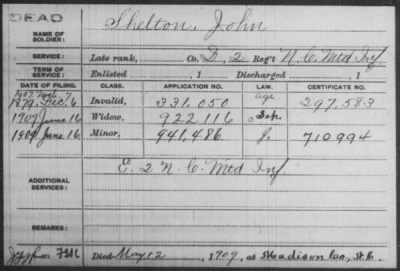 DEAD
NAME OF SOLDIER: Shelton, John
SERVICE: Late rank, Co. D, 2 Reg't N. C. Mtd Inf
TERM OF SERVICE: Enlisted , 1 Discharged , 1
DATE OF FILING. CLASS. APPLICATION NO. LAW. CERTIFICATE NO.
1907 Feb. 7 age
1879 Dec. 6 Invalid, 331.050 297.583
1909 June 16 Widow, 922.116
1909 June 16 Minor, 941.486 g. 710994
ADDITIONAL SERVICES: E. 2 N. C. Mtd Inf.
REMARKS:
Died May 12, 1909, at Madison Co, N.C.